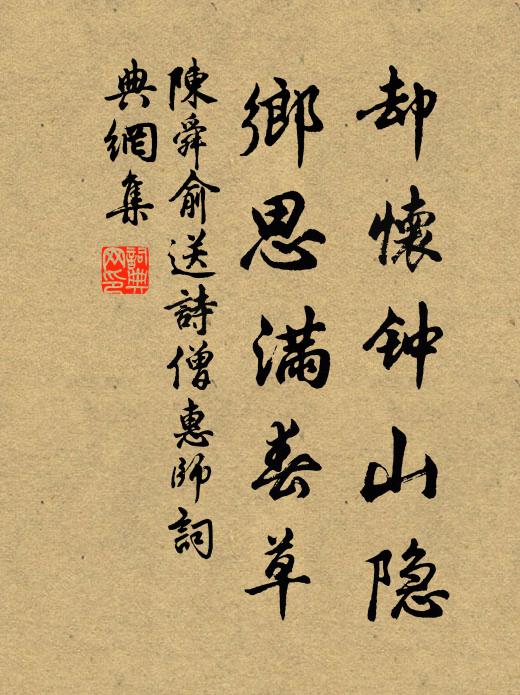 却懷钟山隐
鄉思滿春草
陳舜俞送詩僧惠師詞
典網集
詞典网印